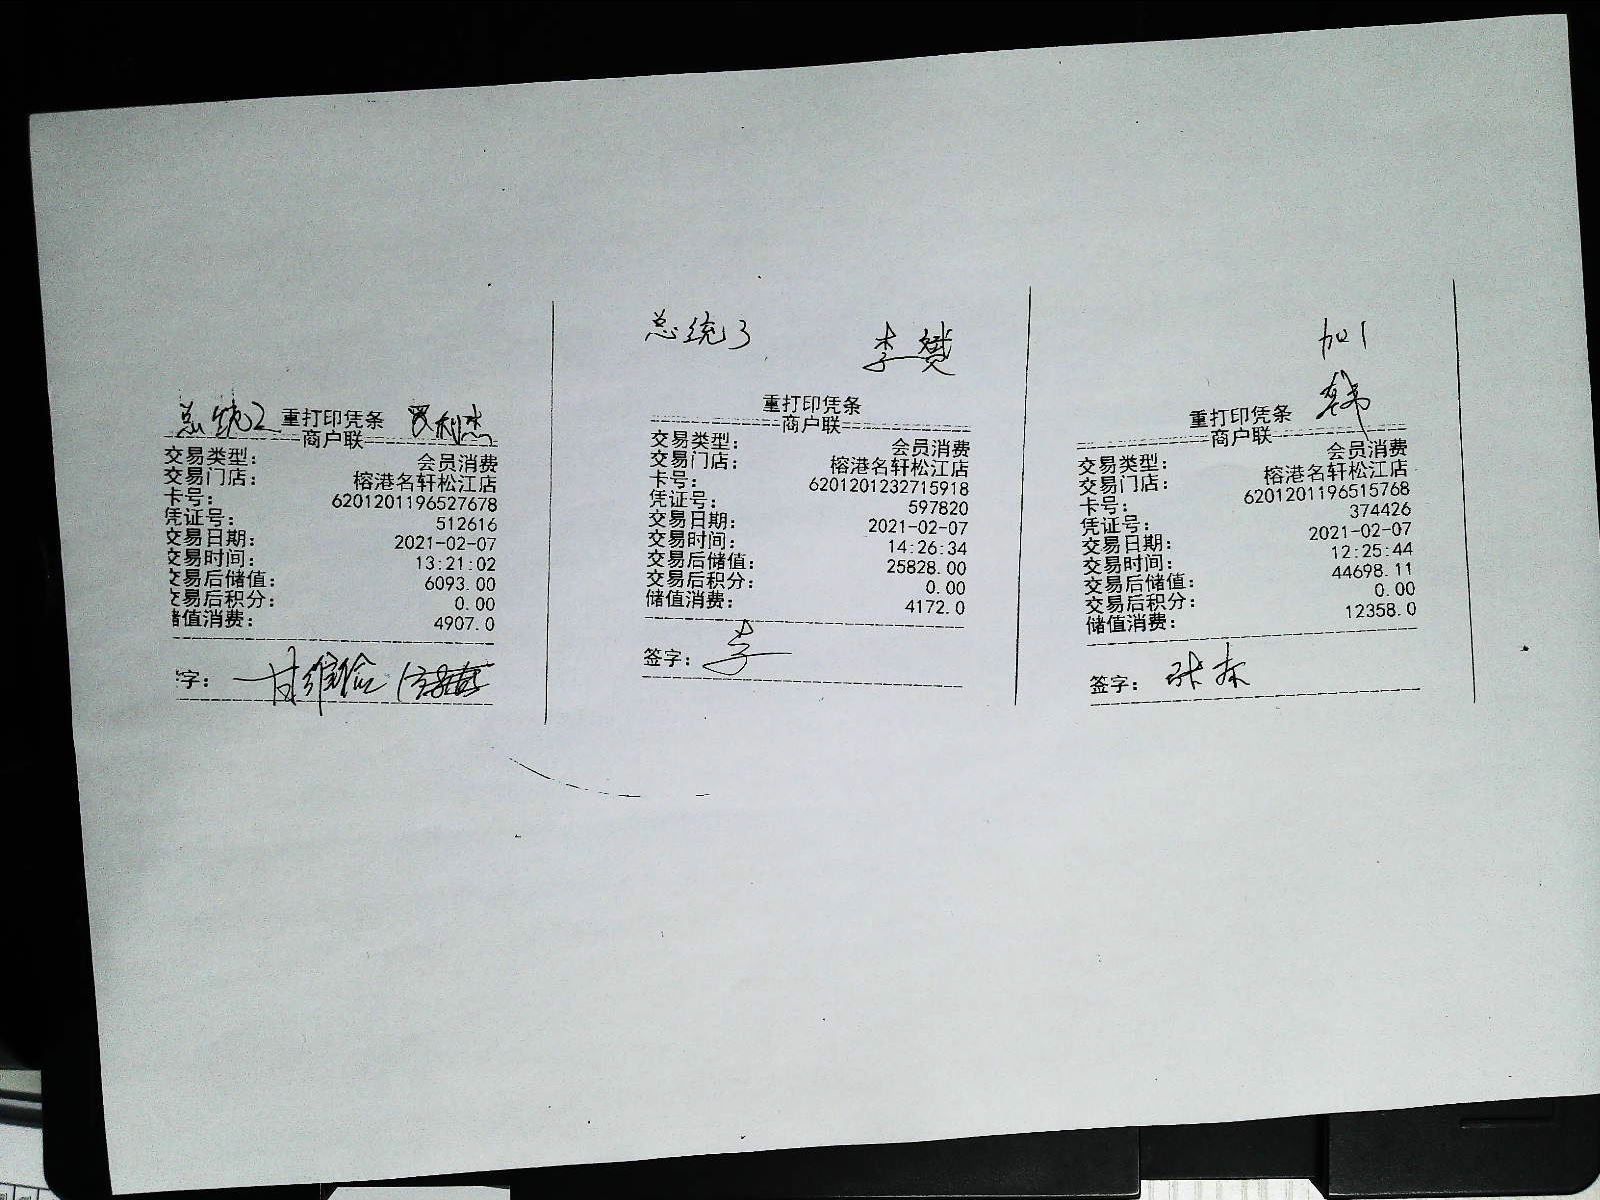 总统2 重打印凭条 罗利杰
商户联
交易类型: 会员消费
交易门店: 榕港名轩松江店
卡号: 6201201196527678
凭证号: 512616
交易日期: 2021-02-07
交易时间: 13:21:02
交易后储值: 6093.00
交易后积分: 0.00
储值消费: 4907.0
字:
总统3
李
重打印凭条
商户联
交易类型: 会员消费
交易门店: 榕港名轩松江店
卡号: 6201201232715918
凭证号: 597820
交易日期: 2021-02-07
交易时间: 14:26:34
交易后储值: 25828.00
交易后积分: 0.00
储值消费: 4172.0
签字: 李
加1
韩
重打印凭条
商户联
交易类型: 会员消费
交易门店: 榕港名轩松江店
卡号: 6201201196515768
凭证号: 374426
交易日期: 2021-02-07
交易时间: 12:25:44
交易后储值: 44698.11
交易后积分: 0.00
储值消费: 12358.0
签字: